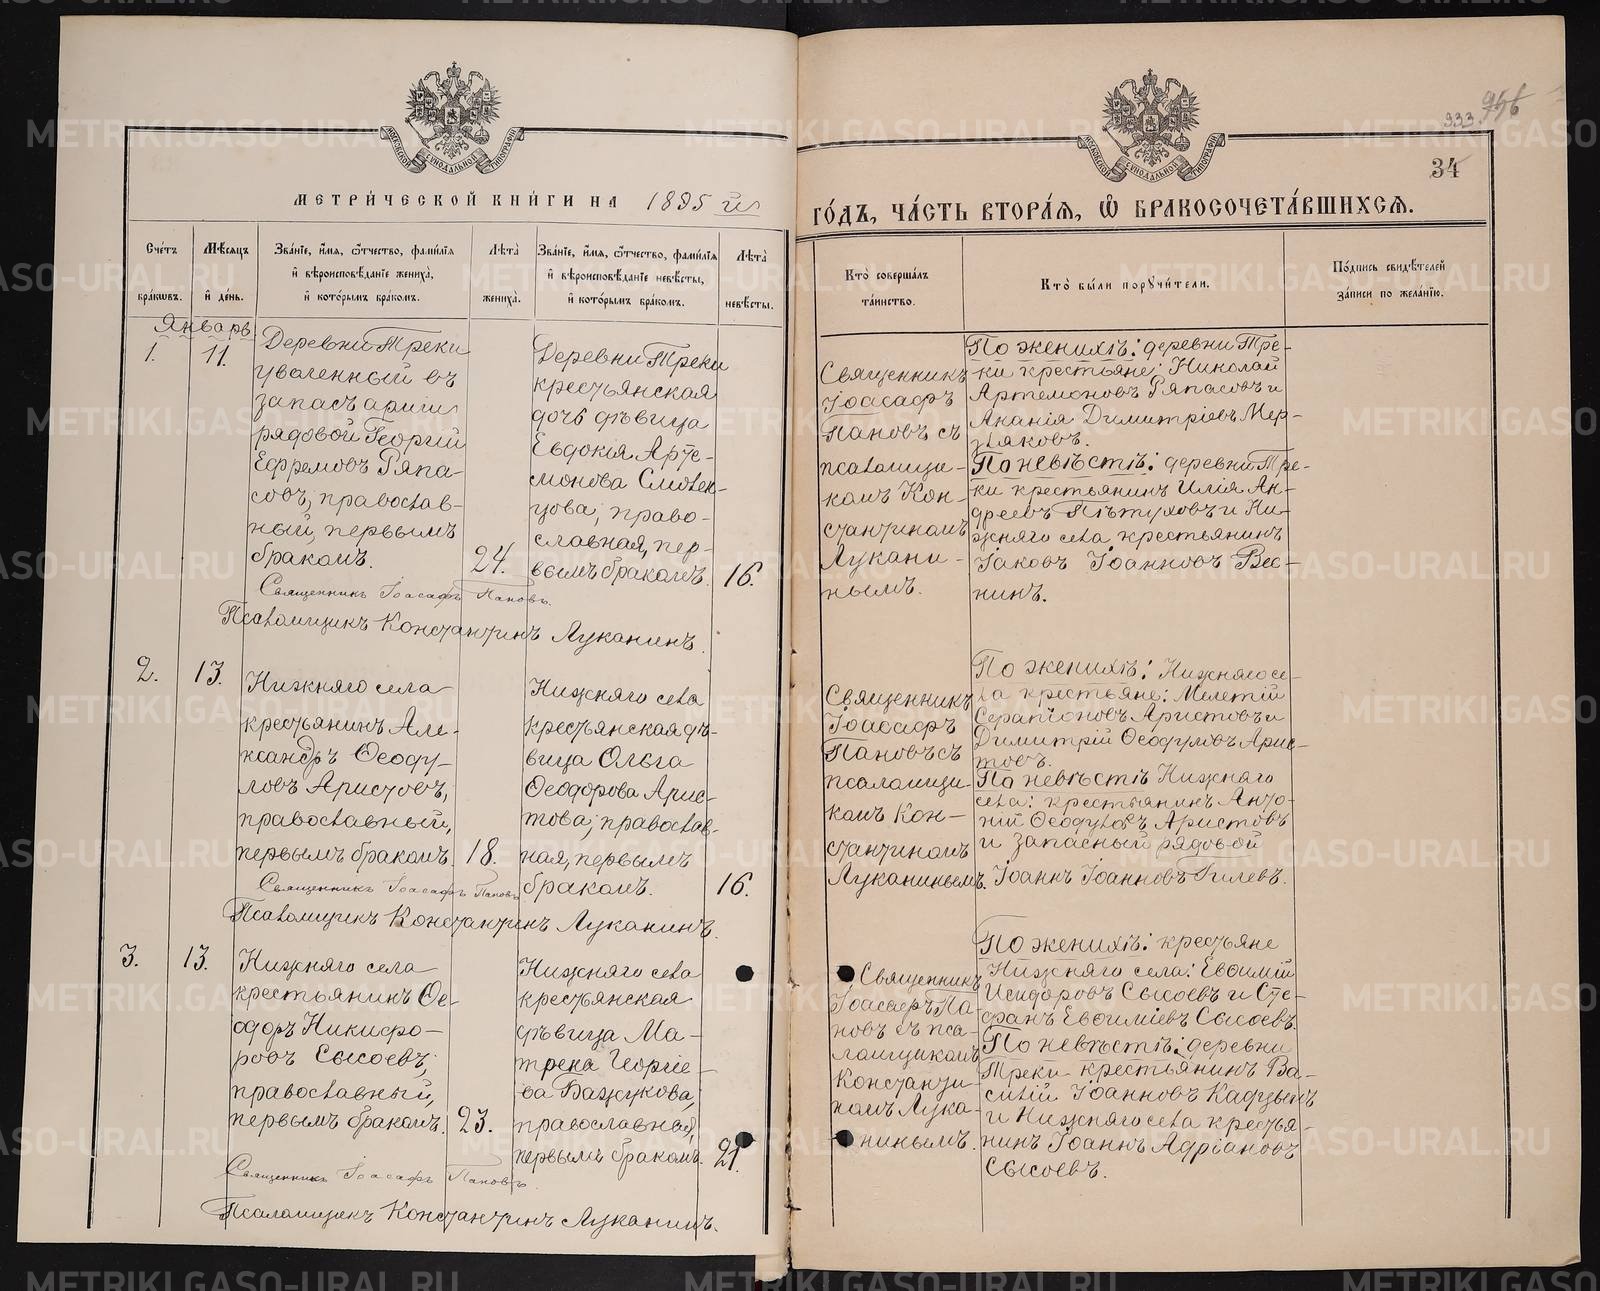 933. 956
34
МЕТРИ́ЧЕСКОЙ КНИ́ГИ НА 1895 й
ГО́ДЪ, ЧА́СТЬ ВТОРА́Я, Ѡ҆ БРАКОСОЧЕТА́ВШИХСЯ.
Сче́тъ бра́кѡвъ.
Мѣ́сяцъ и҆ де́нь.
Зва́нїе, и҆́мя, ѻ҆́тчество, фами́лїя
и҆ вѣроисповѣ́данїе жениха̀,
и҆ кото́рымъ бра́комъ.
Лѣта̀
жениха̀.
Зва́нїе, и҆́мя, ѻ҆́тчество, фами́лїя
и҆ вѣроисповѣ́данїе невѣ́сты,
и҆ кото́рымъ бра́комъ.
Лѣта̀
невѣ́сты.
Кто̀ соверша́лъ
та́инство.
Кто̀ бы́ли порꙋчи́тели.
По́дпись свидѣ́телей
за́писи по жела́нїю.
Январь
1.
11.
Деревни Треки
уволенный въ
запасъ арміи
рядовой Георгій
Ефремовъ Ряпа-
совъ, православ-
ный, первымъ
бракомъ.
24.
Деревни Треки
крестьянская
дочь дѣвица
Евдокія Арте-
монова Смолен-
цова, право-
славная, пер-
вымъ бракомъ.
16.
Священникъ
Іоасафъ
Пановъ съ
псаломщи-
комъ Кон-
стантиномъ
Лукани-
нымъ.
По женихѣ: деревни Тре-
ки крестьяне: Николай
Артемоновъ Ряпасовъ и
Ананія Димитріевъ Мер-
зляковъ.
По невѣстѣ: деревни Тре-
ки крестьянинъ Илія Ан-
дреевъ Пѣтуховъ и Ни-
жняго села крестьянинъ
Іаковъ Іоанновъ Вес-
нинъ.
Священникъ Іоасафъ Пановъ.
Псаломщикъ Константинъ Луканинъ.
2.
13.
Нижняго села
крестьянинъ Але-
ксандръ Ѳеоду-
ловъ Аристовъ,
православный,
первымъ бракомъ.
18.
Нижняго села
крестьянская дѣ-
вица Ольга
Ѳеодорова Арис-
това, православ-
ная, первымъ
бракомъ.
16.
Священникъ
Іоасафъ
Пановъ съ
псаломщи-
комъ Кон-
стантиномъ
Луканинымъ.
По женихѣ: Нижняго се-
ла крестьяне: Мелетій
Серапіоновъ Аристовъ и
Димитрій Ѳеодуловъ Арис-
товъ.
По невѣстѣ Нижняго
села: крестьянинъ Анто-
ній Ѳеодуловъ Аристовъ
и запасный рядовой
Іоаннъ Іоанновъ Гилевъ.
Священникъ Іоасафъ Пановъ
Псаломщикъ Константинъ Луканинъ.
3.
13.
Нижняго села
крестьянинъ Ѳе-
одоръ Никифо-
ровъ Сысоевъ,
православный,
первымъ бракомъ.
23.
Нижняго села
крестьянская
дѣвица Ма-
трена Георгіе-
ва Бажукова,
православная,
первымъ бракомъ.
21.
Священникъ
Іоасафъ Па-
новъ съ пса-
ломщикомъ
Константи-
номъ Лука-
нинымъ.
По женихѣ: крестьяне
Нижняго села: Евѳимій
Исидоровъ Сысоевъ и Сте-
фанъ Евѳиміевъ Сысоевъ.
По невѣстѣ: деревни
Треки крестьянинъ Ва-
силій Іоанновъ
и Нижняго села крестья-
нинъ Іоаннъ Адріановъ
Сысоевъ.
Священникъ Іоасафъ Пановъ.
Псаломщикъ Константинъ Луканинъ.
METRIKI.GASO-URAL.RU